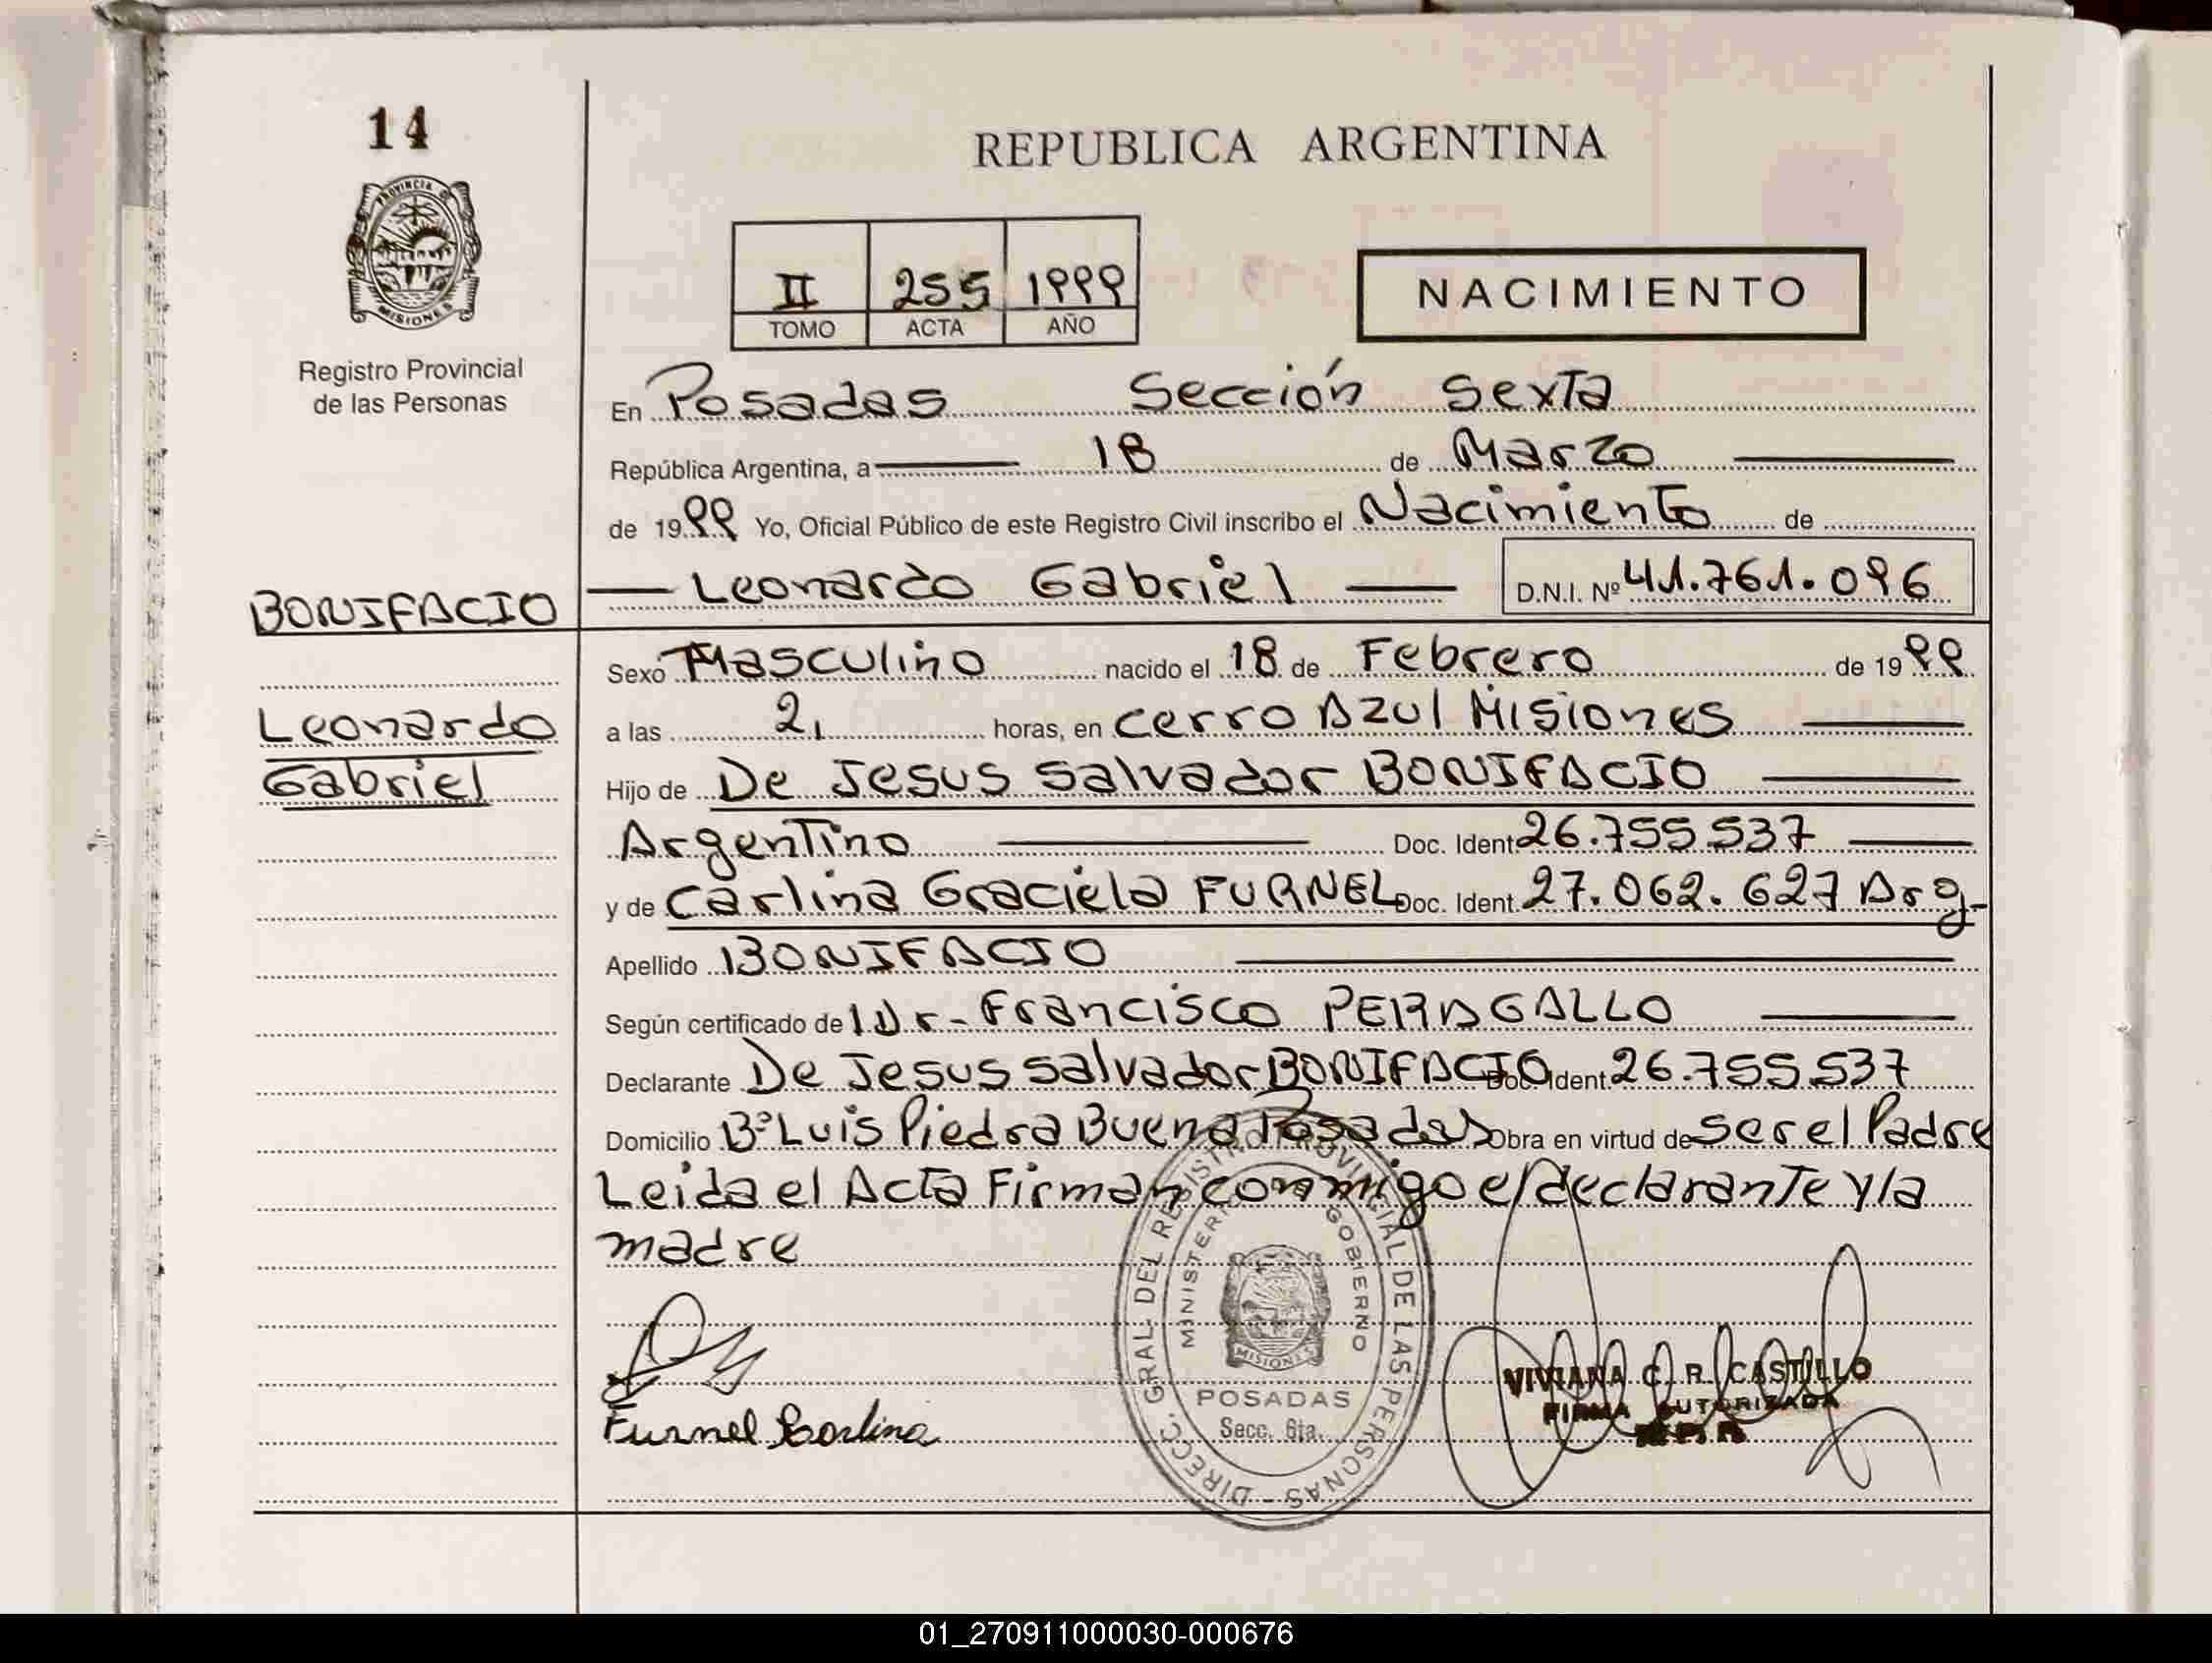 14
PROVINCIA D
MISIONES
Registro Provincial
de las Personas
BONIFACIO
Leonardo
Gabriel
REPUBLICA ARGENTINA
II 255 1999
TOMO ACTA AÑO
NACIMIENTO
En Posadas Sección Sexta
República Argentina, a 18 de Marzo
de 1999 Yo, Oficial Público de este Registro Civil inscribo el Nacimiento de
Leonardo Gabriel D.N.I. Nº 41.761.096
Sexo Masculino nacido el 18 de Febrero de 1999
a las 2, horas, en Cerro Azul Misiones
Hijo de De Jesus Salvador BONIFACIO
Argentino Doc. Ident 26.755.537
y de Carlina Graciela FURNEL Doc. Ident. 27.062.627 Arg-
Apellido BONIFACIO
Según certificado de Dr- Francisco PERAGALLO
Declarante De Jesus Salvador BONIFACIO Doc. Ident. 26.755.537
Domicilio Bº Luis Piedra Buena Posadas Obra en virtud de ser el Padre
Leida el Acta Firman conmigo el declarante y la
madre
Furnel Carlina
DIRECC. GRAL DEL REGISTRO PROVINCIAL DE LAS PERSONAS -
MINISTER GOBIERNO
MISIONES
POSADAS
Secc. 6ta.
VIVIANA C. R. CASTILLO
FIRMA AUTORIZADA
01_270911000030-000676